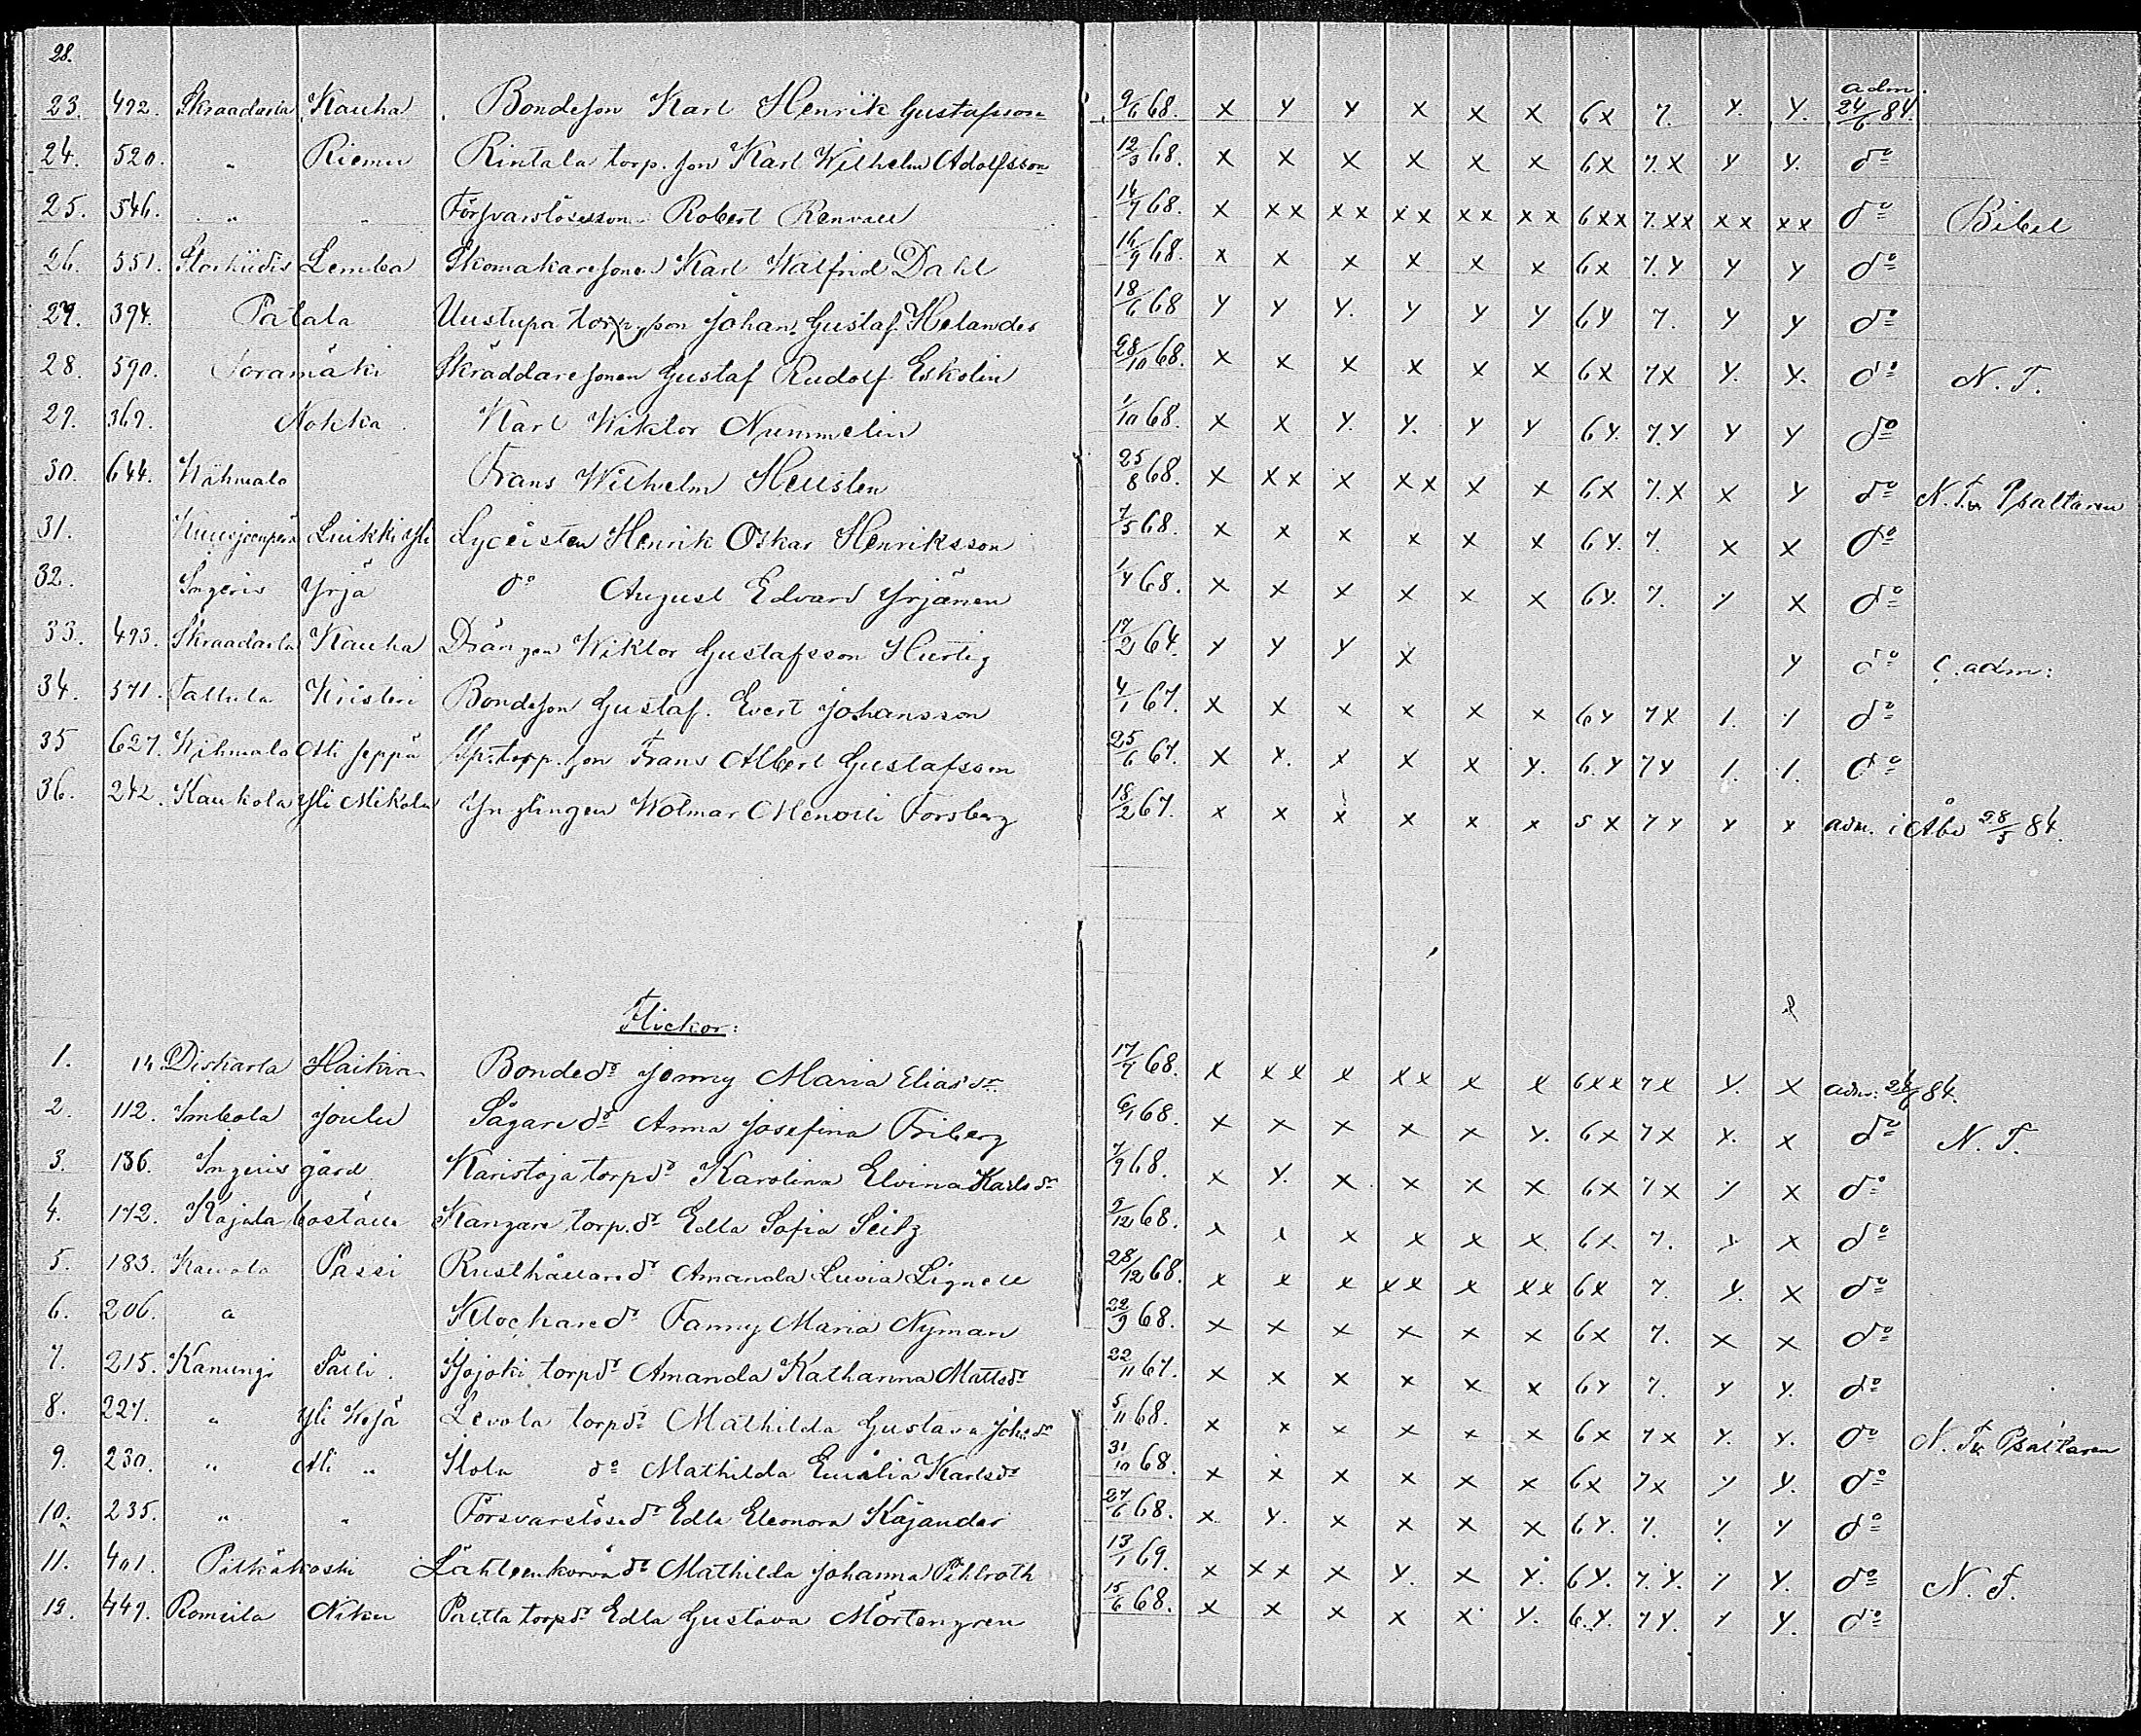 28.
23. 492. Skraadarla Kauha Bondeson Karl Henrik Gustafsson 9/6 68. x y y x x x 6x 7. y. y. adm. 24/6 84.
24. 520. " Riemu Rintala torp. son Karl Wilhelm Adolfsson 12/3 68. x x x x x x 6x 7.x y y. do
25. 546. " " Försvarslöseson Robert Renvall 14/7 68. x xx xx xx xx xx 6xx 7.xx xx xx do Bibel
26. 551. Storhiidis Lemba Skomakaresonen Karl Walfrid Dahl 16/9 68. x x x x x x 6x 7.y y y do
27. 394. Patala Uustupa torp. son Johan Gustaf Helander 18/6 68 y y y. y y y 6y 7. y y do
28. 590. Toramäki Skräddaresonen Gustaf Rudolf Eskolin 28/10 68. x x x x x x 6x 7x y. y. do N. T.
29. 369. Nokka Karl Wiktor Nummelin 1/10 68. x x y. y. y y 6y. 7.y y y do
30. 644. Wähmalo Frans Wilhelm Heusten 25/8 68. x xx x xx x x 6x 7.x x y do N. T. Psaltaren
31. Luikki Yli Lyceisten Henrik Oskar Henriksson 7/5 68. x x x x x x 6y. 7. x x do
32. Ingeris Yrjä do August Edvard Yrjänen 1/4 68. x x x x x x 6y. 7. y x do
33. 493. Skraadarla Kauha Drängen Wiktor Gustafsson Hurtig 17/2 64. y y y x y do adm:
34. 571. Tattula Kristeri Bondeson Gustaf Evert Johansson 4/1 67. x x x x x x 6y 7x 1. 1 do
35 627. Wähmalo Ali Seppä torp. son Frans Albert Gustafsson 25/6 67. x x. x x x y. 6.y 7y 1. 1. do
36. 242. Kaukola Yli Mikola Ynglingen Wolmar Forsberg 18/2 67. x x x x x x 5x 7y y x adm. i Åbo 28/5 84.
Flickor:
1. 14 Diskarla Haikia Bondedr Jenny Maria Eliasdr 17/7 68. x xx x xx x x 6xx 7x y. x adm: 24/6 84.
2. 112. Imbola Joulu Sågaredr Anna Josefina Friberg 6/1 68. x x x x x y. 6x 7x x. x do N. T.
3. 136. Ingeris gård Karistoja torpdr Karolina Elvina Karlsdr 7/9 68. x y. x x x x 6x 7x y x do
4. 172. Kajala boställe Kangare torp. dr Edla Sofia Seitz 9/12 68. x x x x x x 6x. 7. y x do
5. 183. Kaivola Passi Rusthållaredr Amanda Luvia Lignell 28/12 68. x x x xx x xx 6x 7. y. x do
6. 206. " Klockaredr Fanny Maria Nyman 22/9 68. x x x x x x 6x 7. x x do
7. 215. Kanungi Sälli torpdr Amanda Katharina Mattsdr 22/11 67. x x x x x x 6y 7. y y. do
8. 227. " Yli Wejä Levola torpdr Mathilda Gustava Johsdr 5/11 68. x x x x x x 6x 7x y. y. do N. T. Psaltaren
9. 230. " Ali " Ilola do Mathilda Emilia Karlsdr 31/10 68. x x x x x x 6x 7x y y. do
10. 235. " " Försvarslösedr Edla Eleonora Kajander 27/6 68. x y. x x x x 6y. 7. y. y do
11. 401. Pitkäkoski Lähteenkorvadr Mathilda Johanna Pihlroth 13/1 69. x xx x y. x y. 6y. 7.y. y y. do N. T.
12. 447. Romsila Niku torpdr Edla Gustava Mörtengren 15/6 68. x x x x x y. 6.y. 7y. y y. do